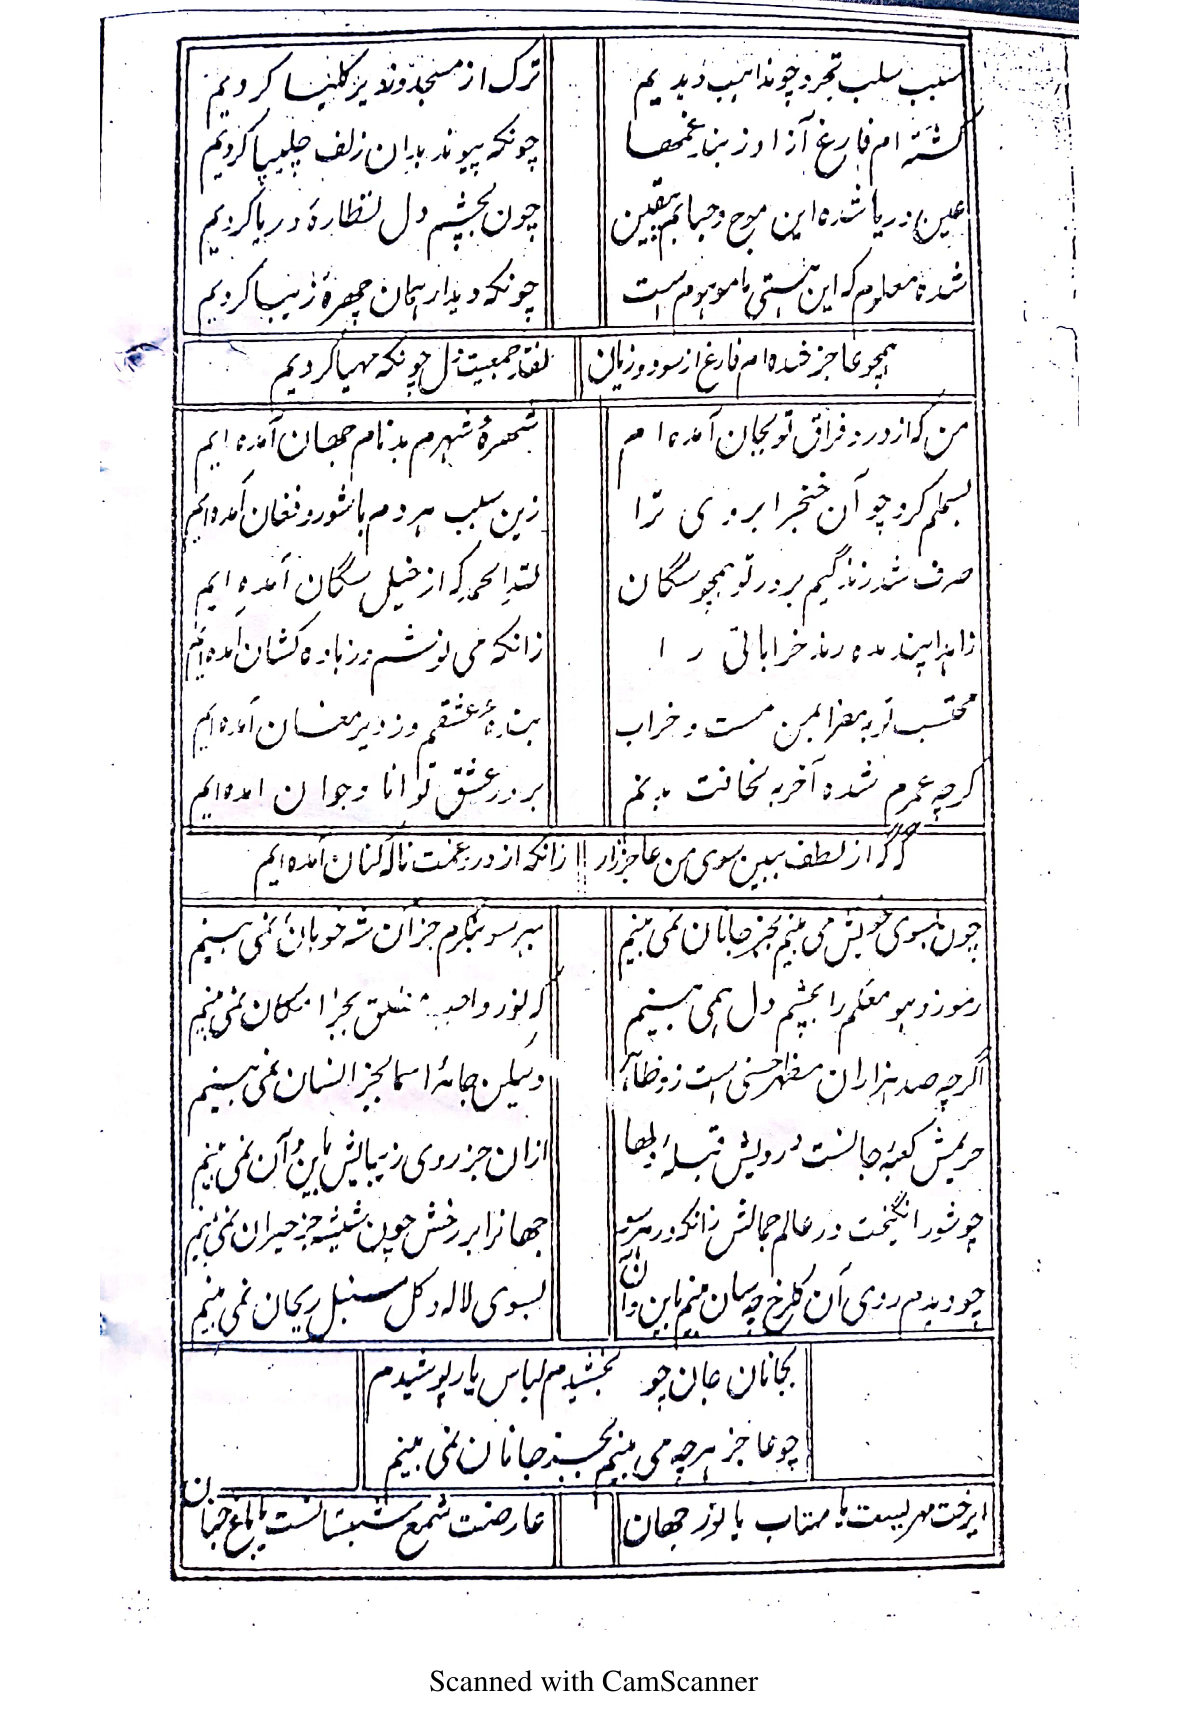 سبب سلب تجرد چو مذاهب دیدیم
ترک از مسجد و دیر کلیسا کردیم
گشته ام فارغ آزاد ز بند غمها
چونکه پیوند بدان زلف چلیپا کردیم
عین دریا شده این موج و حبابم بیقین
چون بچشم دل نظارهٔ دریا کردیم
شده معلوم که این هستی ما موهوم است
چونکه دیدار همان چهرهٔ زیبا کردیم
همچو عاجز شده ام فارغ از سود و زیان
نقد جمعیت دل چونکه مهیا کردیم
من که از درد فراق تو بجان آمده ام
شهرهٔ شهرم بدنام جهان آمده ایم
بسملم کرد چو آن خنجر ابروی ترا
زین سبب هر دم با شور و فغان آمده ایم
صرف شد زندگیم بر در تو همچو سگان
لله الحمد که از خیل سگان آمده ایم
زاهدا پند مده رند خراباتی را
زانکه می نوشم و ز باده کشان آمده ایم
محتسب توبه مفرا بمن مست و خراب
بندهٔ عشقم و ز دیر مغان آمده ایم
گرچه عمرم شده آخر به
بر در عشق توانا و جوان آمده ایم
گر از لطف ببین سوی من عاجز زار
زانکه از درد غمت ناله کنان آمده ایم
چون بسوی خویش می بینم بجز جانان نمی بینم
بهر سو بنگرم جز آن شه خوبان نمی بینم
رموز وهو معکم را بچشم دل همی بینم
که نور واحد مطلق بجز امکان نمی بینم
اگرچه صد هزاران مظهر حسنی است
ولیکن جامهٔ اسما بجز انسان نمی بینم
حریمش کعبهٔ جانست درویش قبلهٔ دلها
ازان جز روی زیبایش باین و آن نمی بینم
چو شور انگیخت در عالم جمالش زانکه در هر سو
جهانرا بر رخش چون شیشه جز حیران نمی بینم
چو دیدم روی آن گلرخ چه سان بینم باین و آن
بسوی لاله و گل سنبل ریحان نمی بینم
بجانان جان چو بخشیدم لباس یار پوشیدم
چو عاجز هرچه می بینم بجز جانان نمی بینم
ای رخت مهریست یا مهتاب یا نور جهان
عارضت شمع شبستانست یا باغ جنان
Scanned with CamScanner